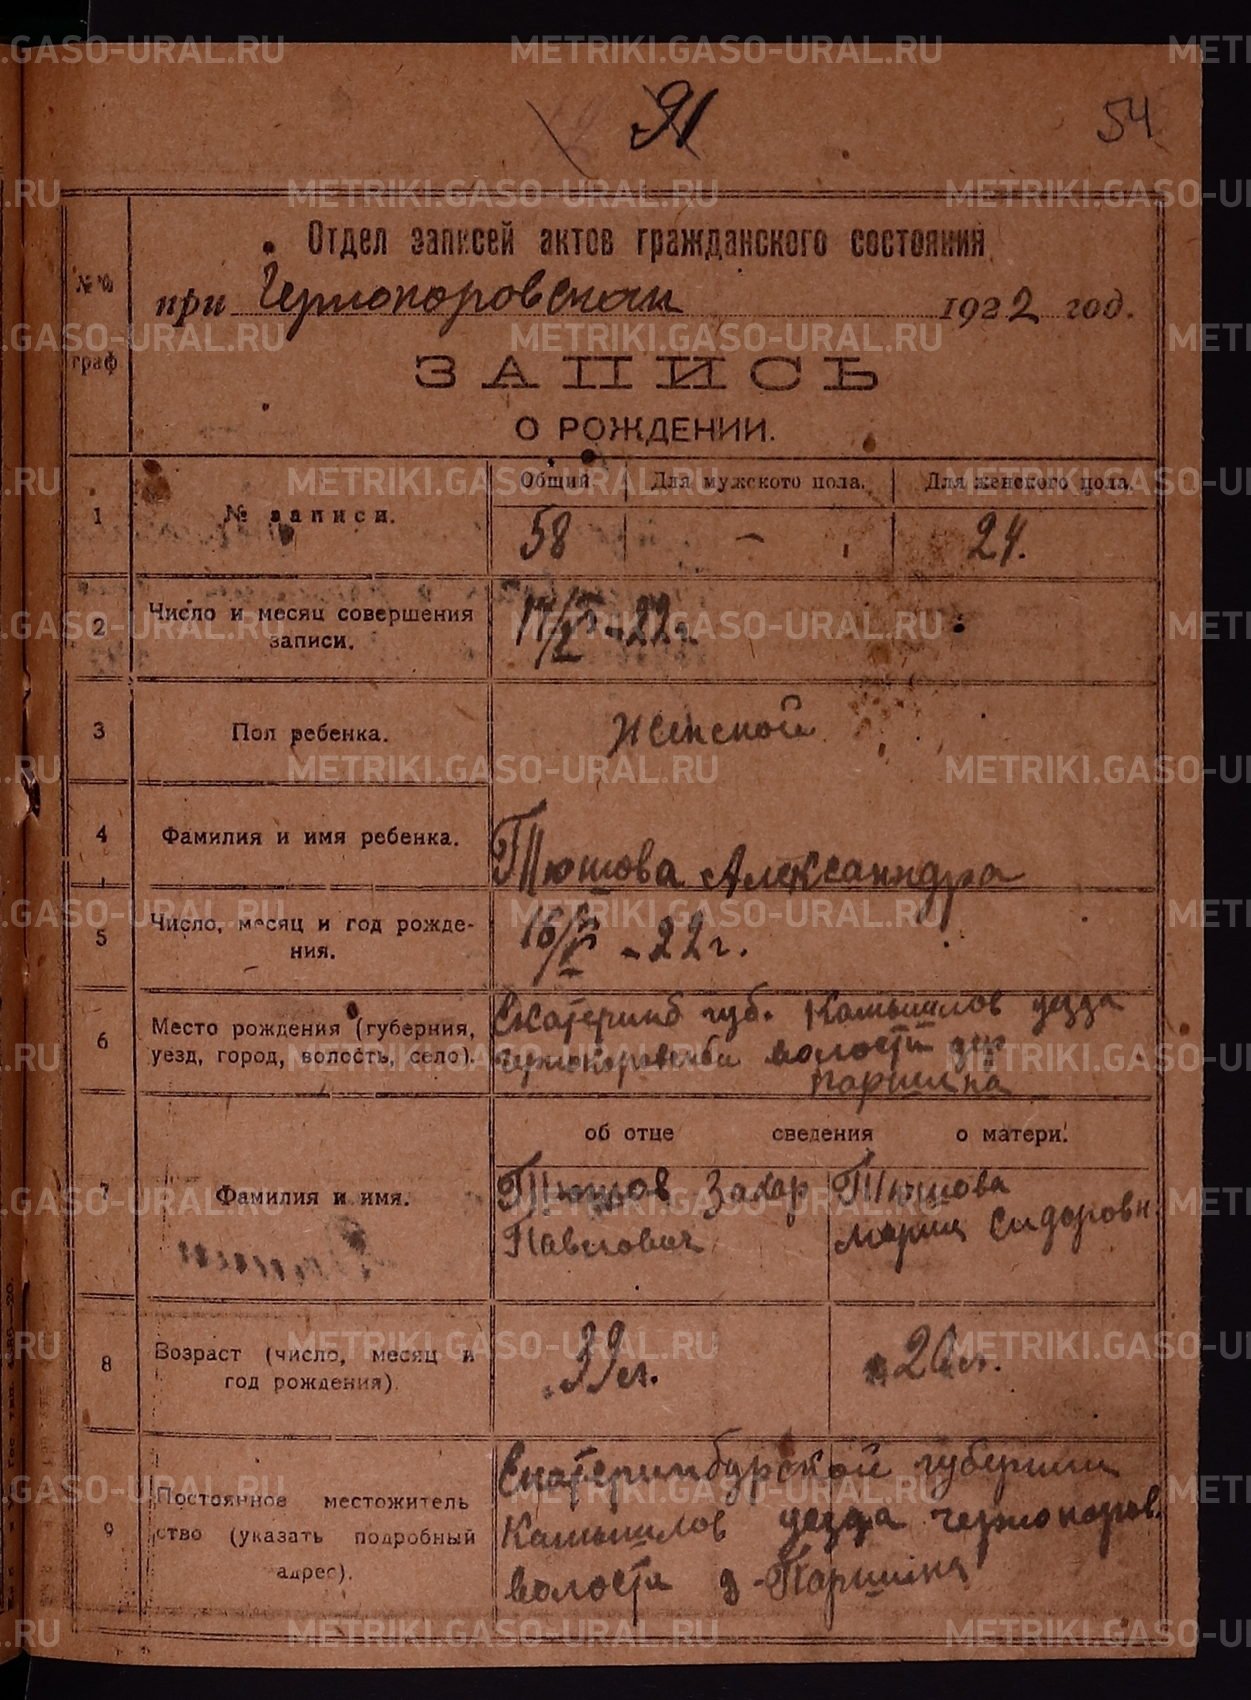 91
54
Отдел записей актов гражданского состояния
при Чернокоровском 1922 год.
№№ граф
ЗАПИСЬ
О РОЖДЕНИИ.
Общий Для мужского пола. Для женского пола.
1 № записи. 58 — 24.
2 Число и месяц совершения
записи. 17/V-22 г.
3 Пол ребенка. Женской
4 Фамилия и имя ребенка. Тюшова Александра
5 Число, месяц и год рожде-
ния. 16/V-22 г.
6 Место рождения (губерния,
уезд, город, волость, село).
Екатеринб губ. Камышлов уезда
волости дер
Паршина
об отце сведения о матери.
7 Фамилия и имя.
Тюшов Захар
Павлович
Тюшова
Мария Сидоровн
8 Возраст (число, месяц и
год рождения). 39 л. 26 л.
9 Постоянное местожитель
ство (указать подробный
адрес).
Екатеринбурской губернии
Камышлов уезда чернокоров.
волости д. Паршина
METRIKI.GASO-URAL.RU